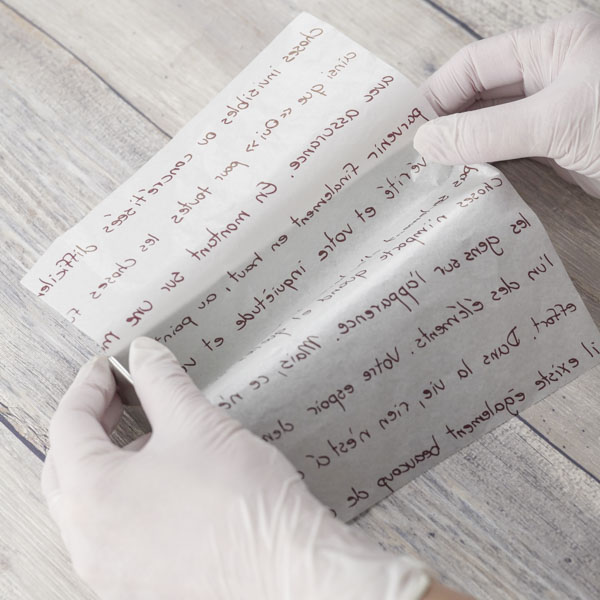 choses invisibles ou concrétisées difficile
ainsi que « Oui » pour toutes les choses
avec assurance. En montant sur une
parvenir finalement en haut, au point
vérité et votre inquiétude et
pas
choses n'importe quand
les gens sur l'apparence. Mais ce
l'un des éléments. Votre espoir
effet. Dans la vie, rien n'est
il existe également beaucoup de